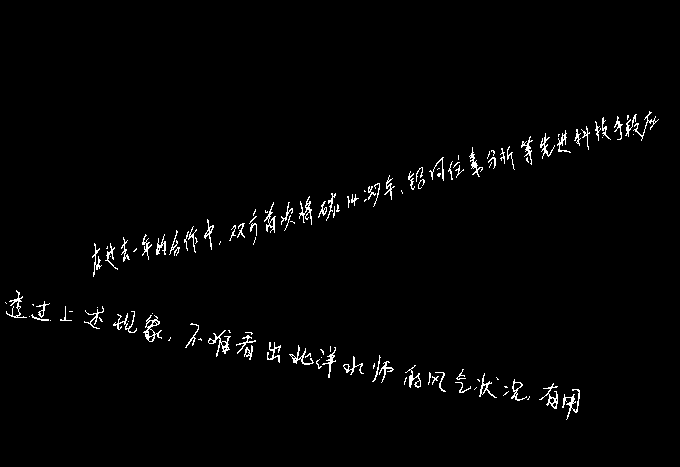 在过去一年的合作中,双方首次将碳14测年、铅同位素分析等先进科技手段应
透过上述现象,不难看出北洋水师的风气状况,有用